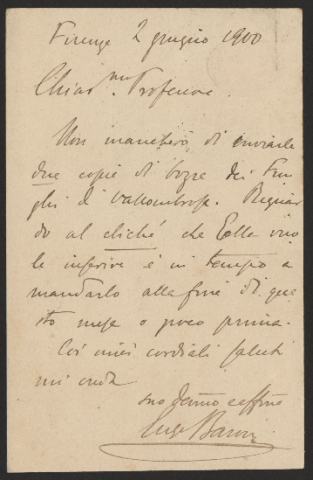 Firenze 2 giugno 1900
Chiar.mo Professore.
Non mancherò di inviarle
due copie di bozze dei Fun
ghi di Vallombrosa. Riguar
do al cliché che Ella vuo
le inserire è in tempo a
mandarlo alla fine di que
sto mese o poco prima.
Coi miei cordiali saluti
mi creda
suo devmo e affmo